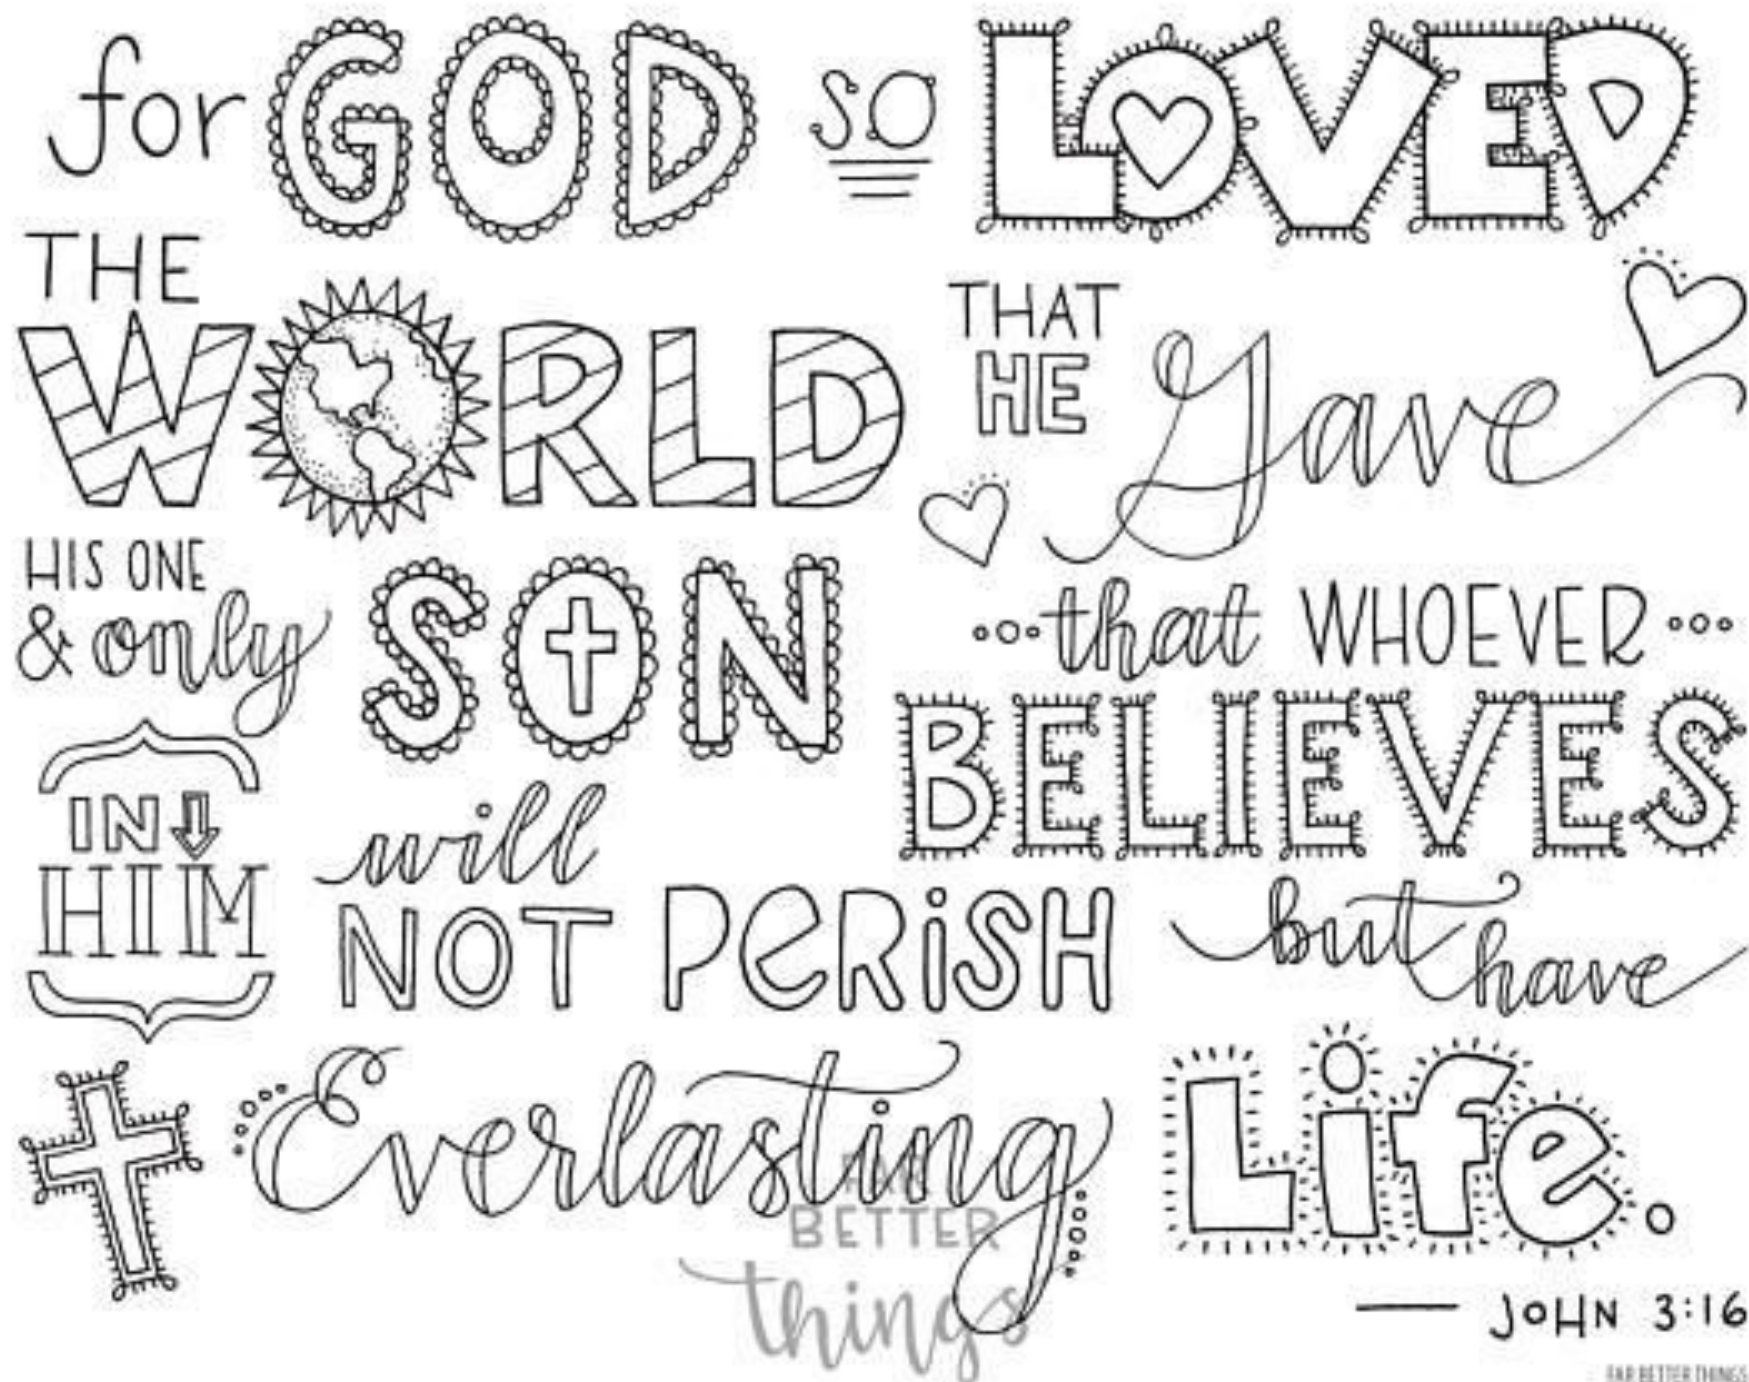 for GOD so LOVED
THE
WORLD
THAT
HE Gave
HIS ONE
& only SON
that WHOEVER
BELIEVES
IN
HIM
will
NOT PERiSH
but have
Everlasting
Life.
JOHN 3:16
FAR
BETTER
things
FAR BETTER THINGS